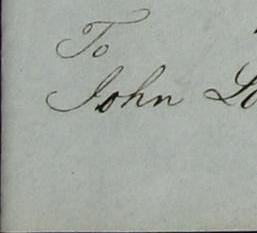 To
John